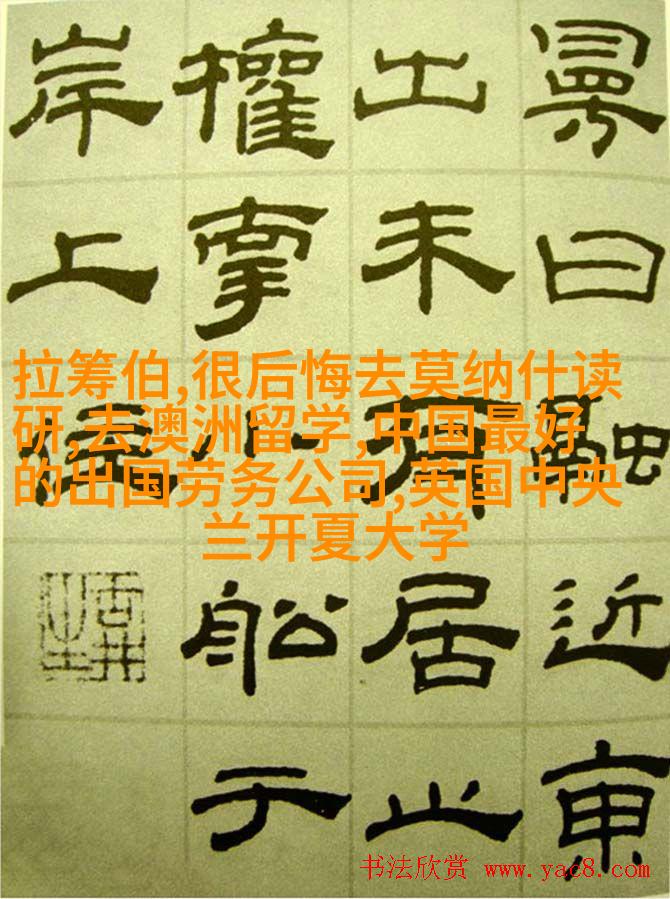 曰融近東
出未有居止
權牽舩于
岸上
拉筹伯,很后悔去莫纳什读
研,去澳洲留学,中国最好
的出国劳务公司,英国中央
兰开夏大学
书法欣赏 www.yac8.com